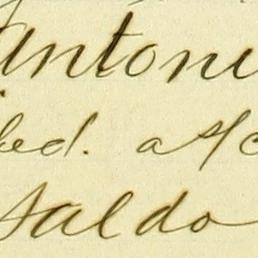 Antoni
bed. a/c
Saldo